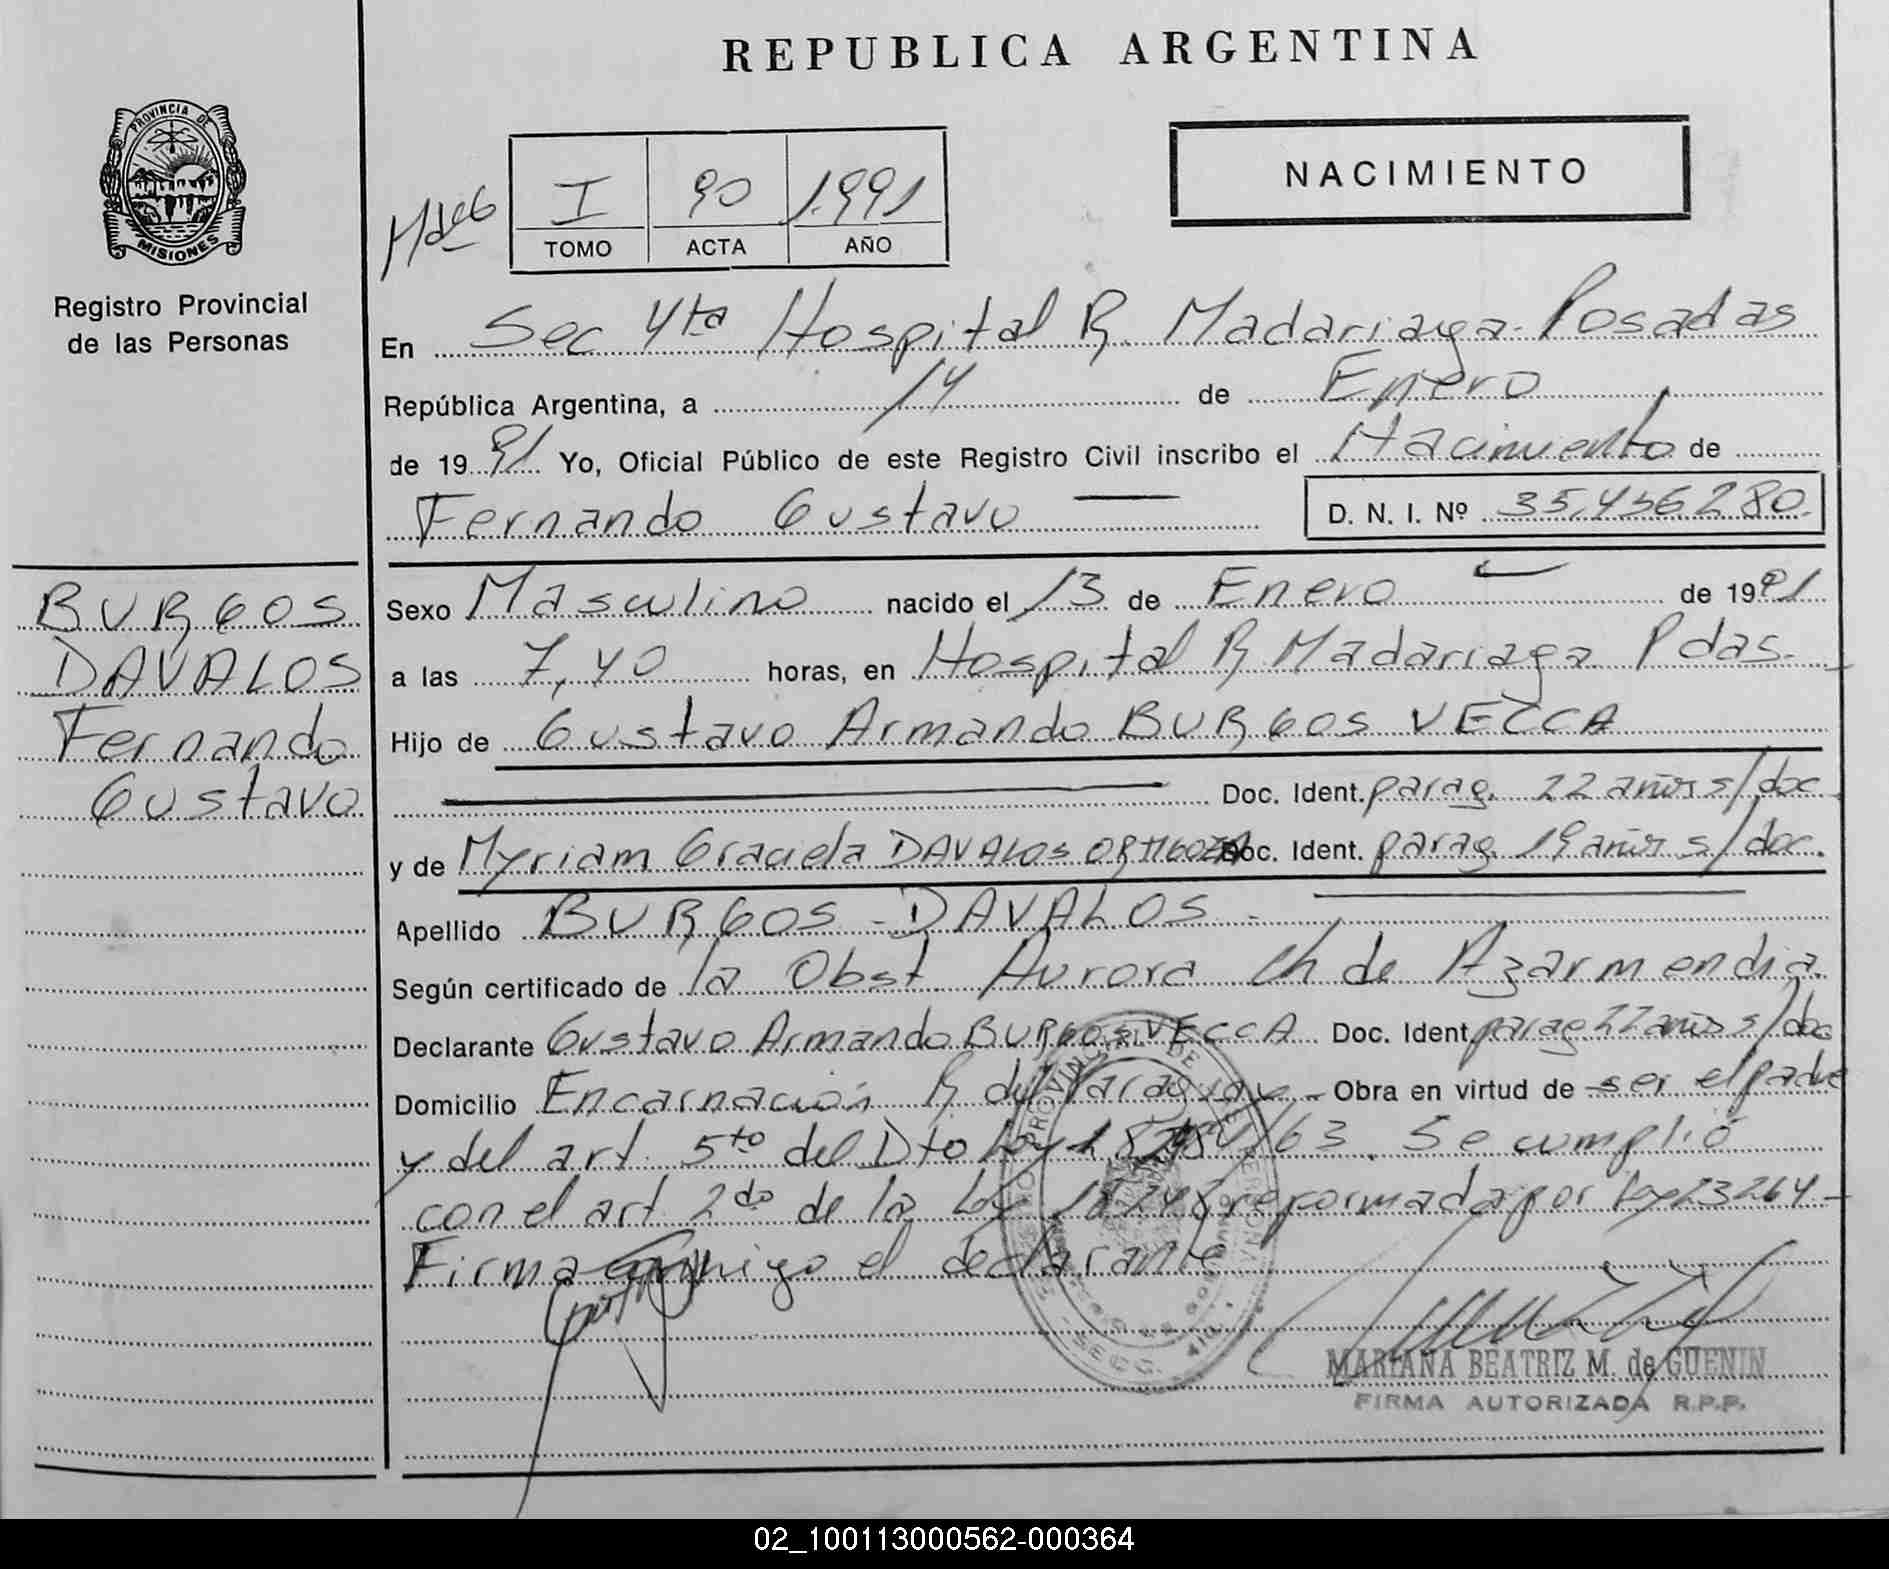 REPUBLICA ARGENTINA
PROVINCIA DE
MISIONES
Registro Provincial
de las Personas
I 90 1.991
TOMO ACTA AÑO
NACIMIENTO
En Sec 4ta Hospital R. Madariaga - Posadas
República Argentina, a 14 de Enero
de 1991 Yo, Oficial Público de este Registro Civil inscribo el Nacimiento de
Fernando Gustavo
D. N. I. Nº 35.456.280.
BURGOS
DAVALOS
Fernando
Gustavo
Sexo Masculino nacido el 13 de Enero de 1991
a las 7,40 horas, en Hospital R Madariaga Pdas.
Hijo de Gustavo Armando BURGOS VECCA
Doc. Ident. parag. 22 años s/doc
y de Myriam Graciela DAVALOS ORTIGOZA Doc. Ident. parag. 19 años s/doc.
Apellido BURGOS - DAVALOS -
Según certificado de la Obst. Aurora Ch de Azarmendia
Declarante Gustavo Armando BURGOS VECCA Doc. Ident. parag 22 años s/doc
Domicilio Encarnación R del Paraguay - Obra en virtud de ser el padre
y del art. 5to del Dto Ley /63. Se cumplió
con el art 2do de la Ley 18248 reformada por Ley 23264 -
Firma conmigo el declarante
MARIANA BEATRIZ M. de GUENIN
FIRMA AUTORIZADA R.P.P.
02_100113000562-000364